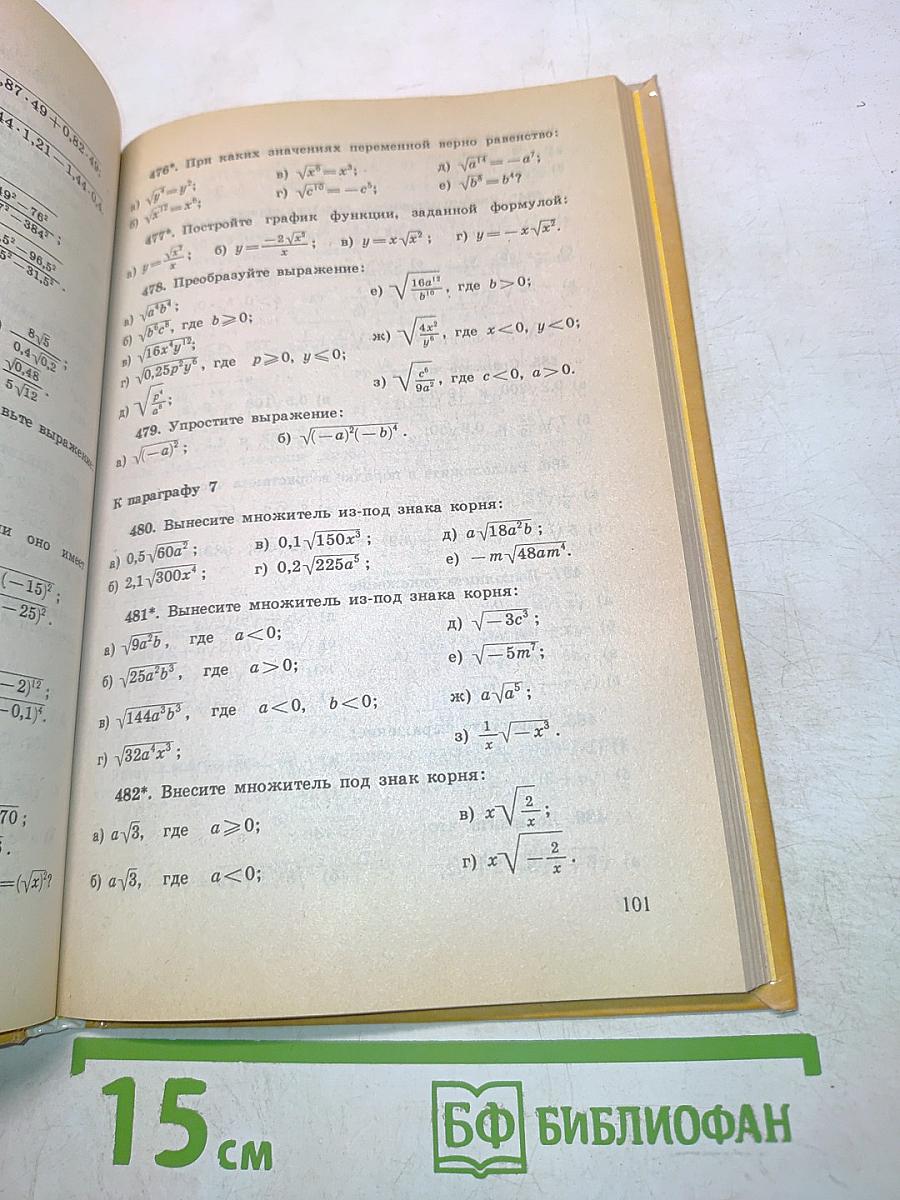 ,87·49+0,82·49;
44·1,21−1,44·0,4.
49²−76²
7²−384²;
5,5²−96,5²
5²−31,5².
8√5
0,4√0,2;
√0,48
5√12.
вьте выражение
ли оно имеет
(−15)²;
−25)².
−2)¹²;
−0,1)⁴.
70;
=(√x)²?
476*. При каких значениях переменной верно равенство:
а) √y⁴=y²; в) √x⁶=x³; д) √a¹⁴=−a⁷;
б) √x¹²=x⁶; г) √c¹⁰=−c⁵; е) √b⁸=b⁴?
477*. Постройте график функции, заданной формулой:
а) y=√x²/x; б) y=−2√x²/x; в) y=x√x²; г) y=−x√x².
478. Преобразуйте выражение:
а) √a⁴b⁴; е) √16a¹²/b¹⁰, где b>0;
б) √b⁶c⁸, где b⩾0;
в) √16x⁴y¹²; ж) √4x²/y⁶, где x<0, y<0;
г) √0,25p²y⁶, где p⩾0, y⩽0;
д) √p⁴/a⁸; з) √c⁶/9a², где c<0, a>0.
479. Упростите выражение:
а) √(−a)²; б) √(−a)²(−b)⁴.
К параграфу 7
480. Вынесите множитель из-под знака корня:
а) 0,5√60a²; в) 0,1√150x³; д) a√18a²b;
б) 2,1√300x⁴; г) 0,2√225a⁵; е) −m√48am⁴.
481*. Вынесите множитель из-под знака корня:
а) √9a²b, где a<0; д) √−3c³;
б) √25a²b³, где a>0; е) √−5m⁷;
в) √144a³b³, где a<0, b<0; ж) a√a⁵;
г) √32a⁴x³; з) 1/x√−x³.
482*. Внесите множитель под знак корня:
а) a√3, где a⩾0; в) x√2/x;
б) a√3, где a<0; г) x√−2/x.
101
15 см
БФ БИБЛИОФАН